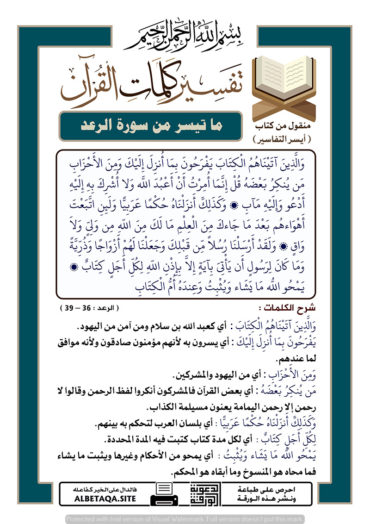 بسم الله الرحمن الرحيم
تفسير كلمات القرآن
منقول من كتاب
( أيسر التفاسير )
ما تيسر من سورة الرعد
وَالَّذِينَ آتَيْنَاهُمُ الْكِتَابَ يَفْرَحُونَ بِمَا أُنزِلَ إِلَيْكَ وَمِنَ الأَحْزَابِ
مَن يُنكِرُ بَعْضَهُ قُلْ إِنَّمَا أُمِرْتُ أَنْ أَعْبُدَ اللَّهَ وَلا أُشْرِكَ بِهِ إِلَيْهِ
أَدْعُو وَإِلَيْهِ مَآبِ * وَكَذَلِكَ أَنزَلْنَاهُ حُكْمًا عَرَبِيًّا وَلَئِنِ اتَّبَعْتَ
أَهْوَاءهُم بَعْدَ مَا جَاءكَ مِنَ الْعِلْمِ مَا لَكَ مِنَ اللَّهِ مِن وَلِيٍّ وَلاَ
وَاقٍ * وَلَقَدْ أَرْسَلْنَا رُسُلاً مِّن قَبْلِكَ وَجَعَلْنَا لَهُمْ أَزْوَاجًا وَذُرِّيَّةً
وَمَا كَانَ لِرَسُولٍ أَن يَأْتِيَ بِآيَةٍ إِلاَّ بِإِذْنِ اللَّهِ لِكُلِّ أَجَلٍ كِتَابٌ *
يَمْحُو اللَّهُ مَا يَشَاء وَيُثْبِتُ وَعِندَهُ أُمُّ الْكِتَابِ
شرح الكلمات :
( الرعد : 36 – 39 )
وَالَّذِينَ آتَيْنَاهُمُ الْكِتَابَ : أي كعبد الله بن سلام ومن آمن من اليهود.
يَفْرَحُونَ بِمَا أُنزِلَ إِلَيْكَ : أي يسرون به لأنهم مؤمنون صادقون ولأنه موافق
لما عندهم.
وَمِنَ الأَحْزَابِ : أي من اليهود والمشركين.
مَن يُنكِرُ بَعْضَهُ : أي بعض القرآن فالمشركون أنكروا لفظ الرحمن وقالوا لا
رحمن إلا رحمن اليمامة يعنون مسيلمة الكذاب.
وَكَذَلِكَ أَنزَلْنَاهُ حُكْمًا عَرَبِيًّا : أي بلسان العرب لتحكم به بينهم.
لِكُلِّ أَجَلٍ كِتَابٌ : أي لكل مدة كتاب كتبت فيه المدة المحددة.
يَمْحُو اللَّهُ مَا يَشَاء وَيُثْبِتُ : أي يمحو من الأحكام وغيرها ويثبت ما يشاء
فما محاه هو المنسوخ وما أبقاه هو المحكم.
احرص على طباعة
ونشر هذه الورقة
الدعوية
الورقة
فالدال على الخير كفاعله
ALBETAQA.SITE